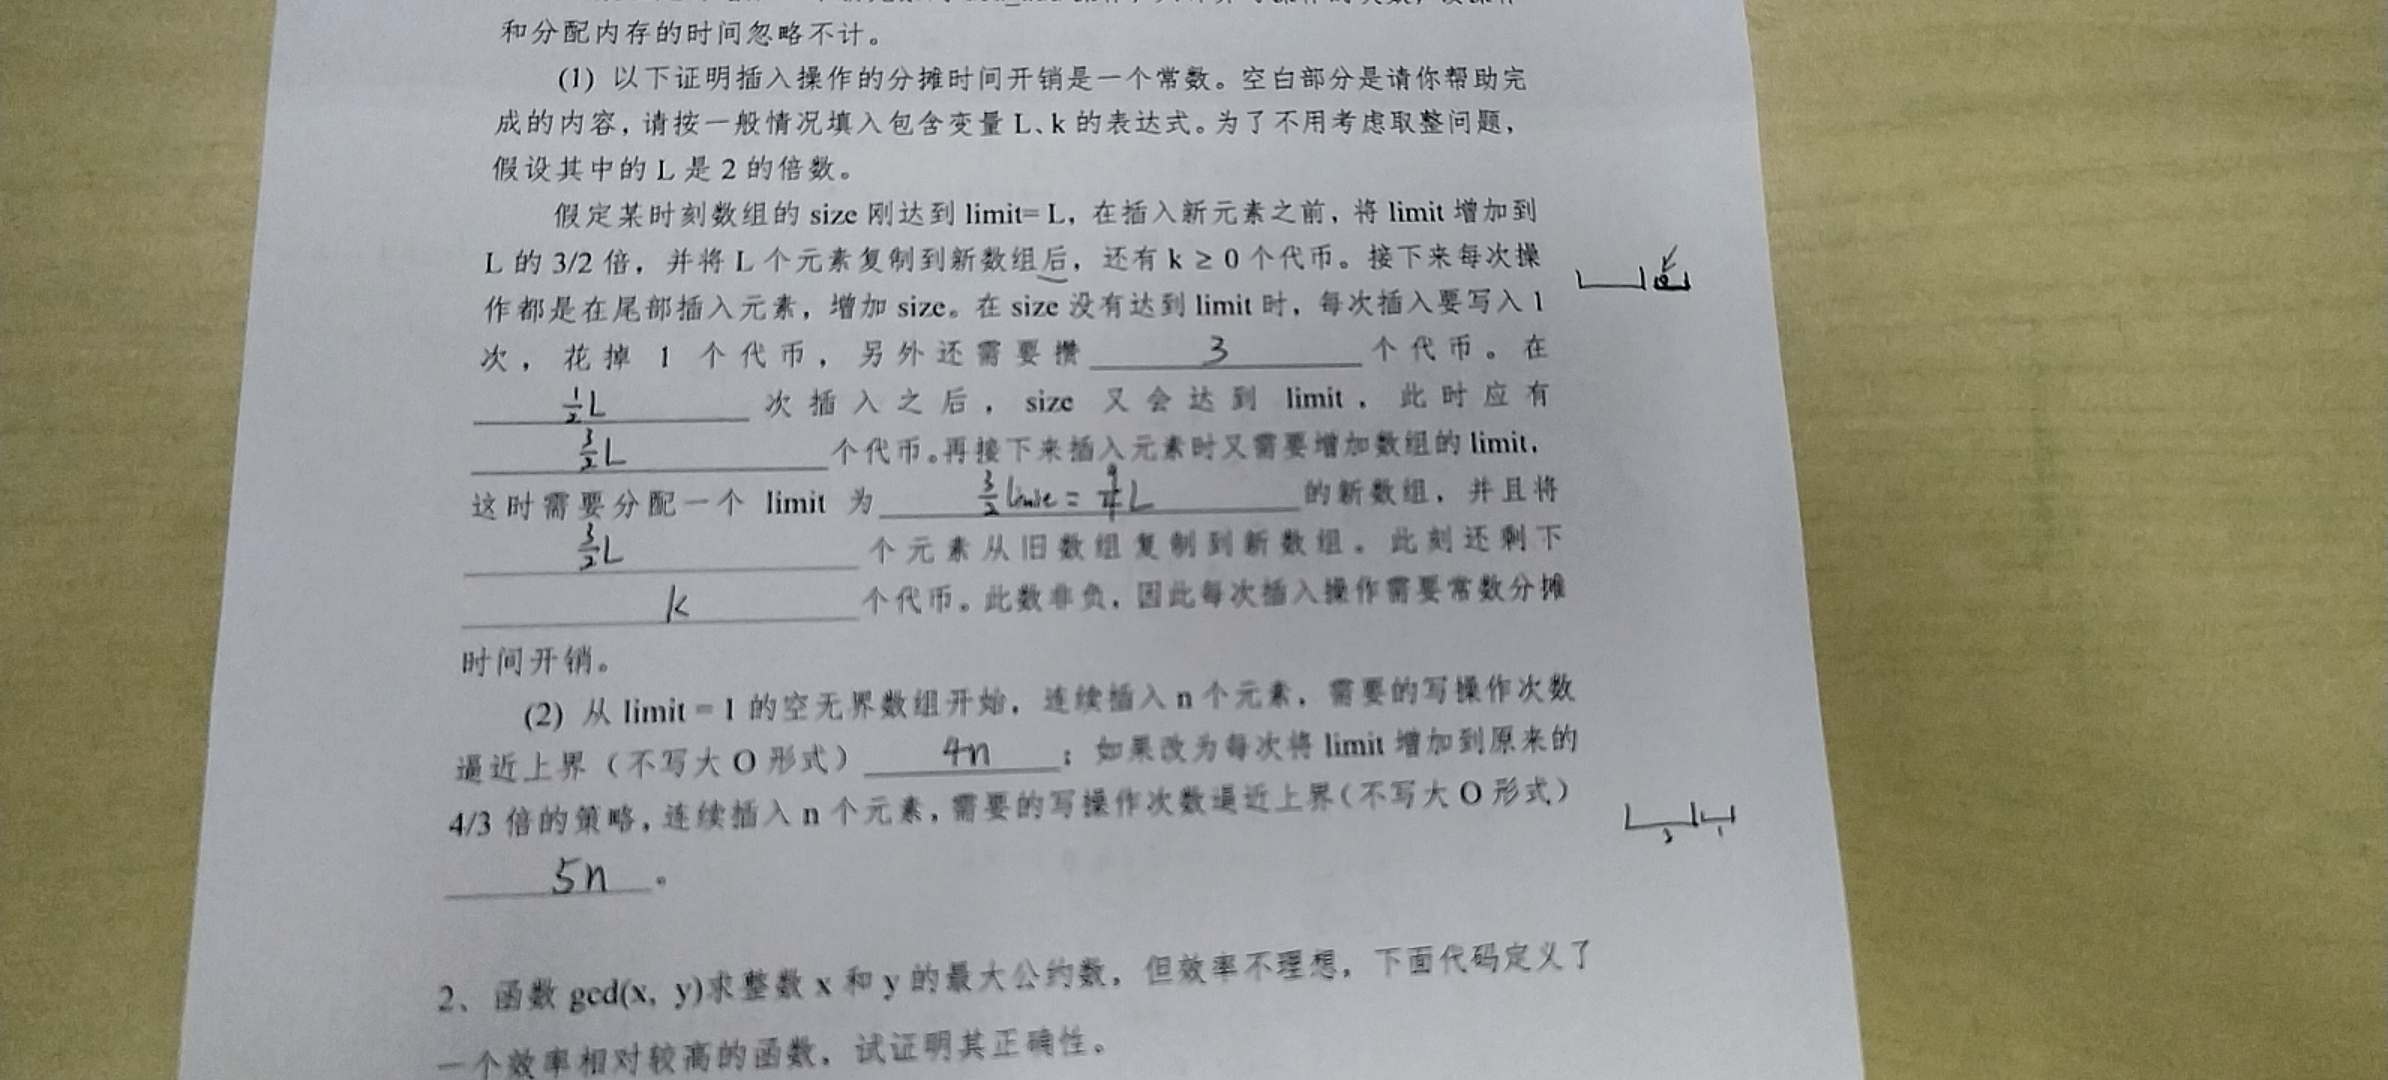 和分配内存的时间忽略不计。
(1) 以下证明插入操作的分摊时间开销是一个常数。空白部分是请你帮助完
成的内容，请按一般情况填入包含变量 L、k 的表达式。为了不用考虑取整问题，
假设其中的 L 是 2 的倍数。
假定某时刻数组的 size 刚达到 limit= L，在插入新元素之前，将 limit 增加到
L 的 3/2 倍，并将 L 个元素复制到新数组后，还有 k ≥ 0 个代币。接下来每次操
作都是在尾部插入元素，增加 size。在 size 没有达到 limit 时，每次插入要写入 1
次，花掉 1 个代币，另外还需要攒 3 个代币。在
1/2 L 次插入之后，size 又会达到 limit，此时应有
3/2 L 个代币。再接下来插入元素时又需要增加数组的 limit，
这时需要分配一个 limit 为 3/2 = 9/4 L 的新数组，并且将
3/2 L 个元素从旧数组复制到新数组。此刻还剩下
k 个代币。此数非负，因此每次插入操作需要常数分摊
时间开销。
(2) 从 limit = 1 的空无界数组开始，连续插入 n 个元素，需要的写操作次数
逼近上界（不写大 O 形式） 4n ；如果改为每次将 limit 增加到原来的
4/3 倍的策略，连续插入 n 个元素，需要的写操作次数逼近上界（不写大 O 形式）
5n 。
3 1
2、函数 gcd(x, y)求整数 x 和 y 的最大公约数，但效率不理想，下面代码定义了
一个效率相对较高的函数，试证明其正确性。